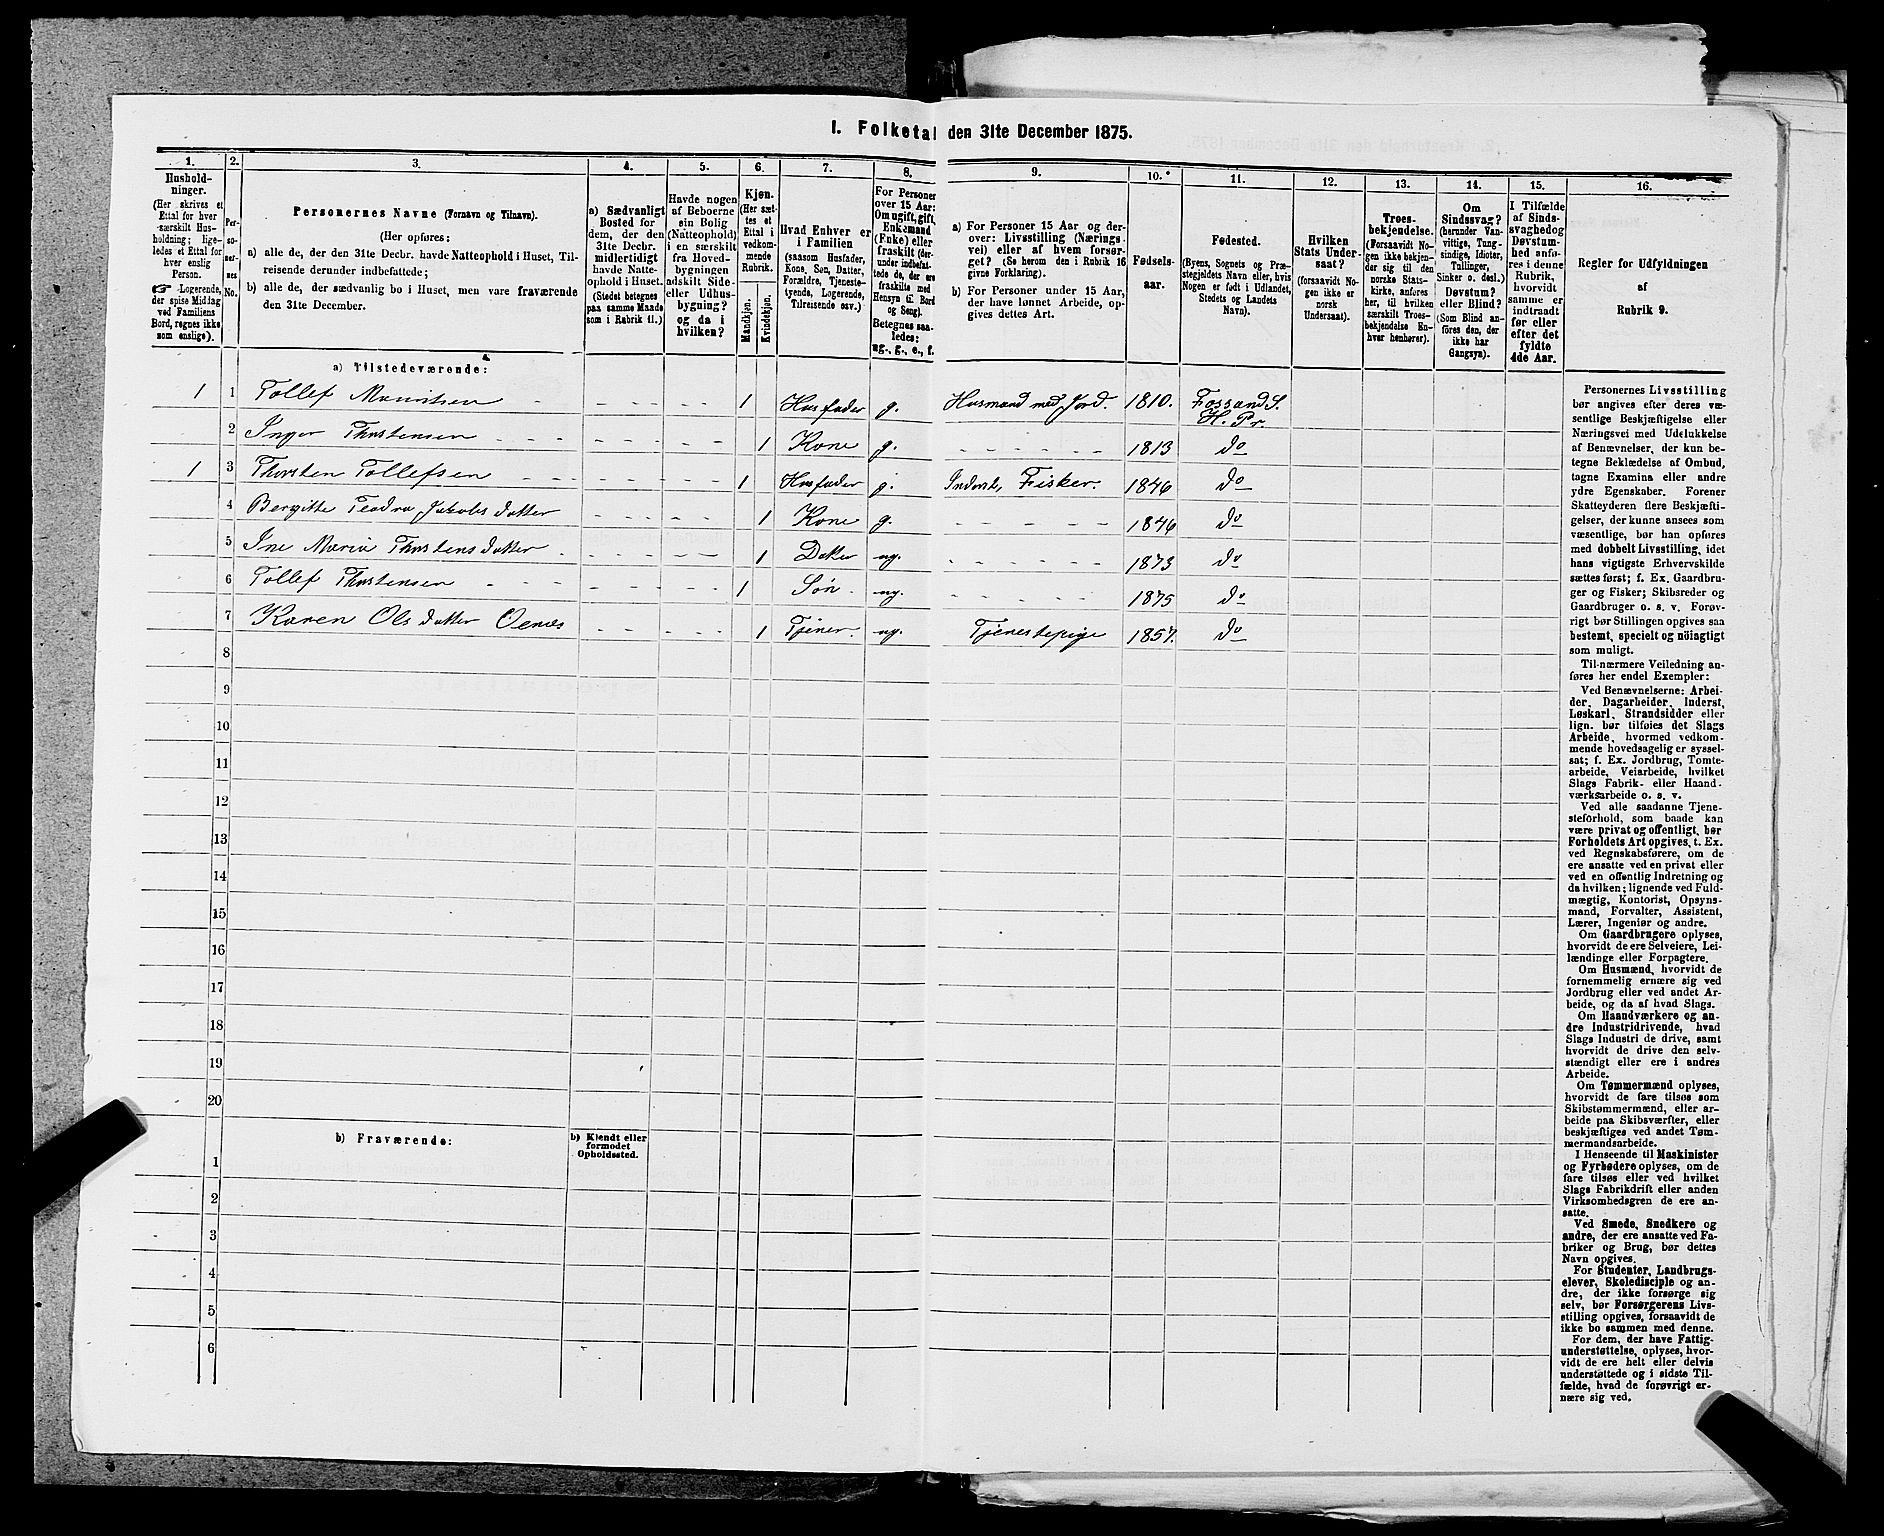 I. Folketal den 31te December 1875.
1. 2. 3. 4. 5. 6. 7. 8. 9. 10. 11. 12. 13. 14. 15. 16.
Hushold-
ninger.
(Her skrives et
Ettal for hver
særskilt Hus-
holdning; lige-
ledes et Ettal for
hver enslig
Person.
☞ Logerende,
der spise Middag
ved Familiens
Bord, regnes ikke
som enslige).
Per-
so-
ner-
nes
No.
Personernes Navne (Fornavn og Tilnavn).
(Her opføres:
a) alle de, der den 31te Decbr. havde Natteophold i Huset, Til-
reisende derunder indbefattede;
b) alle de, der sædvanlig bo i Huset, men vare fraværende
den 31te December.
a) Sædvanligt
Bosted for
dem, der den
31te Decbr.
midlertidigt
havde Natte-
ophold i Huset.
(Stedet betegnes
paa samme Maade
som i Rubrik 11.)
Havde nogen
af Beboerne
sin Bolig
(Natteophold)
i en særskilt
fra Hoved-
bygningen
adskilt Side-
eller Udhus-
bygning?
og da i
hvilken?
Kjøn.
(Her sæt-
tes et
Ettal i
vedkom-
mende
Rubrik.
Mandkjøn.
Kvindekjøn.
Hvad Enhver er
i Familien
(saasom Husfader,
Kone, Søn, Datter,
Forældre, Tjeneste-
tyende, Logerende,
Tilreisende osv.)
For Personer
over 15 Aar:
Om ugift, gift,
Enkemand
(Enke) eller
fraskilt (der-
under indbefat-
tede de, der ere
fraskilte med
Hensyn til Bord
og Seng).
Betegnes saa-
ledes:
ug., g., e., f.
a) For Personer 15 Aar og der-
over: Livsstilling (Nærings-
vei) eller af hvem forsør-
get? (Se herom den i Rubrik 16
givne Forklaring).
b) For Personer under 15 Aar,
der have lønnet Arbeide, op-
gives dettes Art.
Fødsels-
aar.
Fødested.
(Byens, Sognets og Præ-
stegjeldets Navn eller, hvis
Nogen er født i Udlandet,
Stedets og Landets
Navn).
Hvilken
Stats Under-
saat?
(forsaavidt No-
gen ikke er
norsk
Undersaat).
Troes-
bekjendelse.
(Forsaavidt No-
gen ikke bekjen-
der sig til den
norske Stats-
kirke, anføres
her, til hvilken
særskilt Troes-
bekjendelse En-
hver henhører).
Om
Sindssvag?
(herunder Van-
vittige, Tung-
sindige, Idioter,
Tullinger,
Sinker o. desl.)
Døvstum?
eller Blind?
(Som Blind an-
føres den, der
ikke har
Gangsyn).
I Tilfælde
af Sinds-
svaghed og
Døvstum-
hed anfø-
res i denne
Rubrik,
hvorvidt
samme er
indtraadt
før eller
efter det
fyldte
4de Aar.
Regler for Udfyldningen
af
Rubrik 9.
a) Tilstedeværende:
1 1 Tollef Mauritsen 1 Husfader g. Husmand med Jord. 1810. Fossand S. H. Pr.
2 Inger Thorstensen 1 Kone g. 1813 do
1 3 Thorsten Tollefsen 1 Husfader g. Inderst, Fisker. 1846 do
4 Bergitte Teodra Jakobsdatter 1 Kone g. 1846 do
5 Ine Maria Thorstensdatter 1 Datter ug. 1873 do
6 Tollef Thorstensen 1 Søn ug. 1875 do
7 Karen Olsdatter Oenæs 1 Tjener ug. Tjenestepige 1857. do
8
9
10
11
12
13
14
15
16
17
18
19
20
b) Fraværende:
b) Kjendt eller
formodet
Opholdssted.
1
2
3
4
5
6
Personernes Livsstilling
bør angives efter deres væ-
sentlige Beskjæftigelse eller
Næringsvei med Udelukkelse
af Benævnelser, der kun be-
tegne Beklædelse af Ombud,
tagne Examina eller andre
ydre Egenskaber. Forener
Skatteyderen flere Beskjæfti-
gelser, der kunne ansees som
væsentlige, bør han opføres
med dobbelt Livsstilling, idet
hans vigtigste Erhvervskilde
sættes først; f. Ex. Gaardbru-
ger og Fisker; Skibsreder og
Gaardbruger o. s. v. Forøv-
rigt bør Stillingen opgives saa
bestemt, specielt og nöiagtigt
som muligt.
Til nærmere Veiledning an-
føres her endel Exempler:
Ved Benævnelserne: Arbei-
der, Dagarbeider, Inderst,
Løskarl, Strandsidder eller
lign. bør tilføies det Slags
Arbeide, hvormed vedkom-
mende hovedsagelig er syssel-
sat; f. Ex. Jordbrug, Tomte-
arbeide, Veiarbeide, hvilket
Slags Fabrik- eller Haand-
værksarbeide o. s. v.
Ved alle saadanne Tjene-
steforhold, som baade kan
være privat og offentligt, bør
Forholdets Art opgives, f. Ex.
ved Regnskabsførere, om de
ere ansatte ved en privat eller
ved en offentlig Indretning og
da hvilken; lignende ved Fuld-
mægtig, Kontorist, Opsyns-
mand, Forvalter, Assistent,
Lærer, Ingeniør og andre.
Om Gaardbrugere oplyses,
hvorvidt de ere Selveiere, Lei-
lændinge eller Forpagtere.
Om Husmænd, hvorvidt de
fornemmelig ernære sig ved
Jordbrug eller ved andet Ar-
beide, og da af hvad Slags.
Om Haandværkere og an-
dre Industridrivende, hvad
Slags Industri de drive, samt
hvorvidt de drive den selv-
stændigt eller ere i andres
Arbeide.
Om Tømmermænd oplyses,
hvorvidt de fare tilsøs som
Skibstømmermænd, eller ar-
beide paa Skibsværfter, eller
beskjæftiges ved andet Tøm-
mermandsarbeide.
I Henseende til Maskinister
og Fyrbødere oplyses, om de
fare tilsøs eller ved hvilket
Slags Fabrikdrift eller anden
Virksomhedsgren de ere an-
satte.
Ved Smede, Snedkere og
andre, der ere ansatte ved Fa-
briker og Brug, bør dettes
Navn opgives.
For Studenter, Landbrugs-
elever, Skoledisciple og an-
dre, der ikke forsørge sig
selv, bør Forsørgerens Livs-
stilling opgives, forsaavidt de
ikke bo sammen med denne.
For dem, der have Fattig-
understøttelse, oplyses, hvor-
vidt de ere helt eller delvis
understøttede og i sidste Til-
fælde, hvad de forøvrigt er-
nære sig ved.